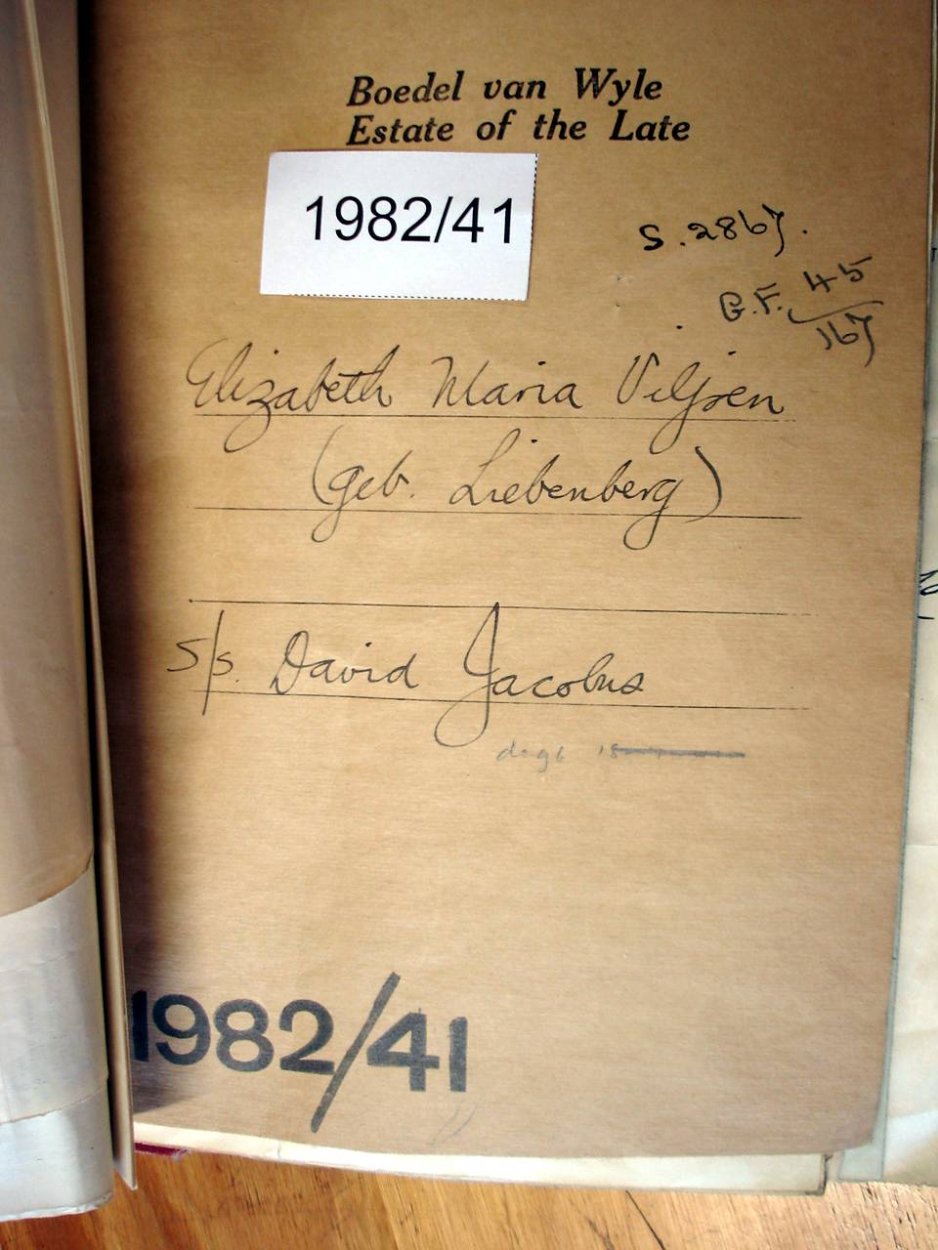 Boedel van Wyle
Estate of the Late
1982/41
S. 2867.
G.F. 45/167
Elizabeth Maria Viljoen
(geb. Liebenberg)
s/s. David Jacobus
1982/41